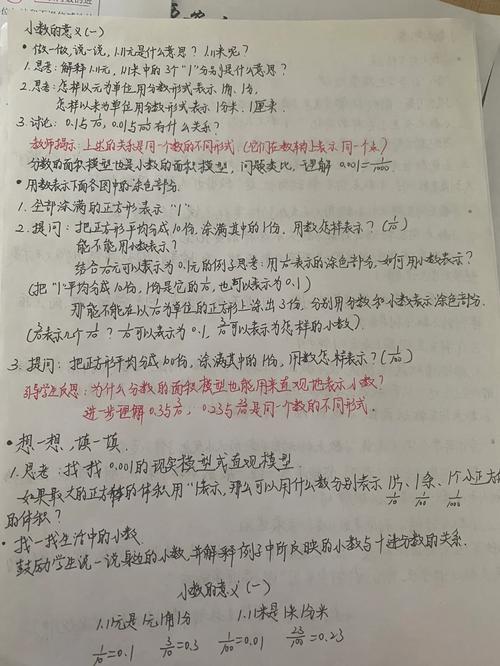 小数的意义(一)
• 做一做,说一说, 1.11元是什么意思? 1.11米呢?
1.思考: 解释1.11元, 1.11米中的3个"1"分别是什么意思?
2.思考: 怎样以元为单位用分数形式表示1角, 1分,
怎样以米为单位用分数形式表示1分米, 1厘米.
3.讨论: 0.1与1/10, 0.01与1/100有什么关系?
教师揭示: 上述的关系是同一个数的不同形式. (它们在数轴上表示同一个点)
分数的面积模型也是小数的面积模型, 问题类比, 理解 0.001=1/1000
• 用数表示下面各图中的涂色部分.
1. 全部涂满的正方形表示"1"
2. 提问: 把正方形平均分成10份, 涂满其中的1份, 用数怎样表示? (1/10)
能不能用小数表示?
结合1/10元可以表示为0.1元的例子思考: 用1/10表示的涂色部分, 如何用小数表示?
(把"1"平均分成10份, 1份是它的1/10, 也可以表示为0.1)
那能不能在以1/10元为单位的正方形上涂出3份, 分别用分数和小数表示涂色部分.
(3/10表示几个1/10? 1/10可以表示为0.1, 3/10可以表示为怎样的小数).
3. 提问: 把正方形平均分成100份, 涂满其中的1份, 用数怎样表示? (1/100)
引导学生反思: 为什么分数的面积模型也能用来直观地表示小数?
进一步理解0.3与3/10, 0.23与23/100是同一个数的不同形式.
• 想一想, 填一填.
1.思考: 找一找 0.001的现实模型或直观模型
如果最大的正方体的体积用"1"表示, 那么可以用什么数分别表示 1片, 1条, 1个小正方体
1/10 1/100 1/1000
的体积?
• 找一找生活中的小数.
鼓励学生说一说身边的小数, 并解释例子中所反映的小数与十进分数的关系.
小数的意义(一)
1.11元是1元1角1分 1.11米是1米1分米
1/10=0.1 3/10=0.3 1/100=0.01 23/100=0.23